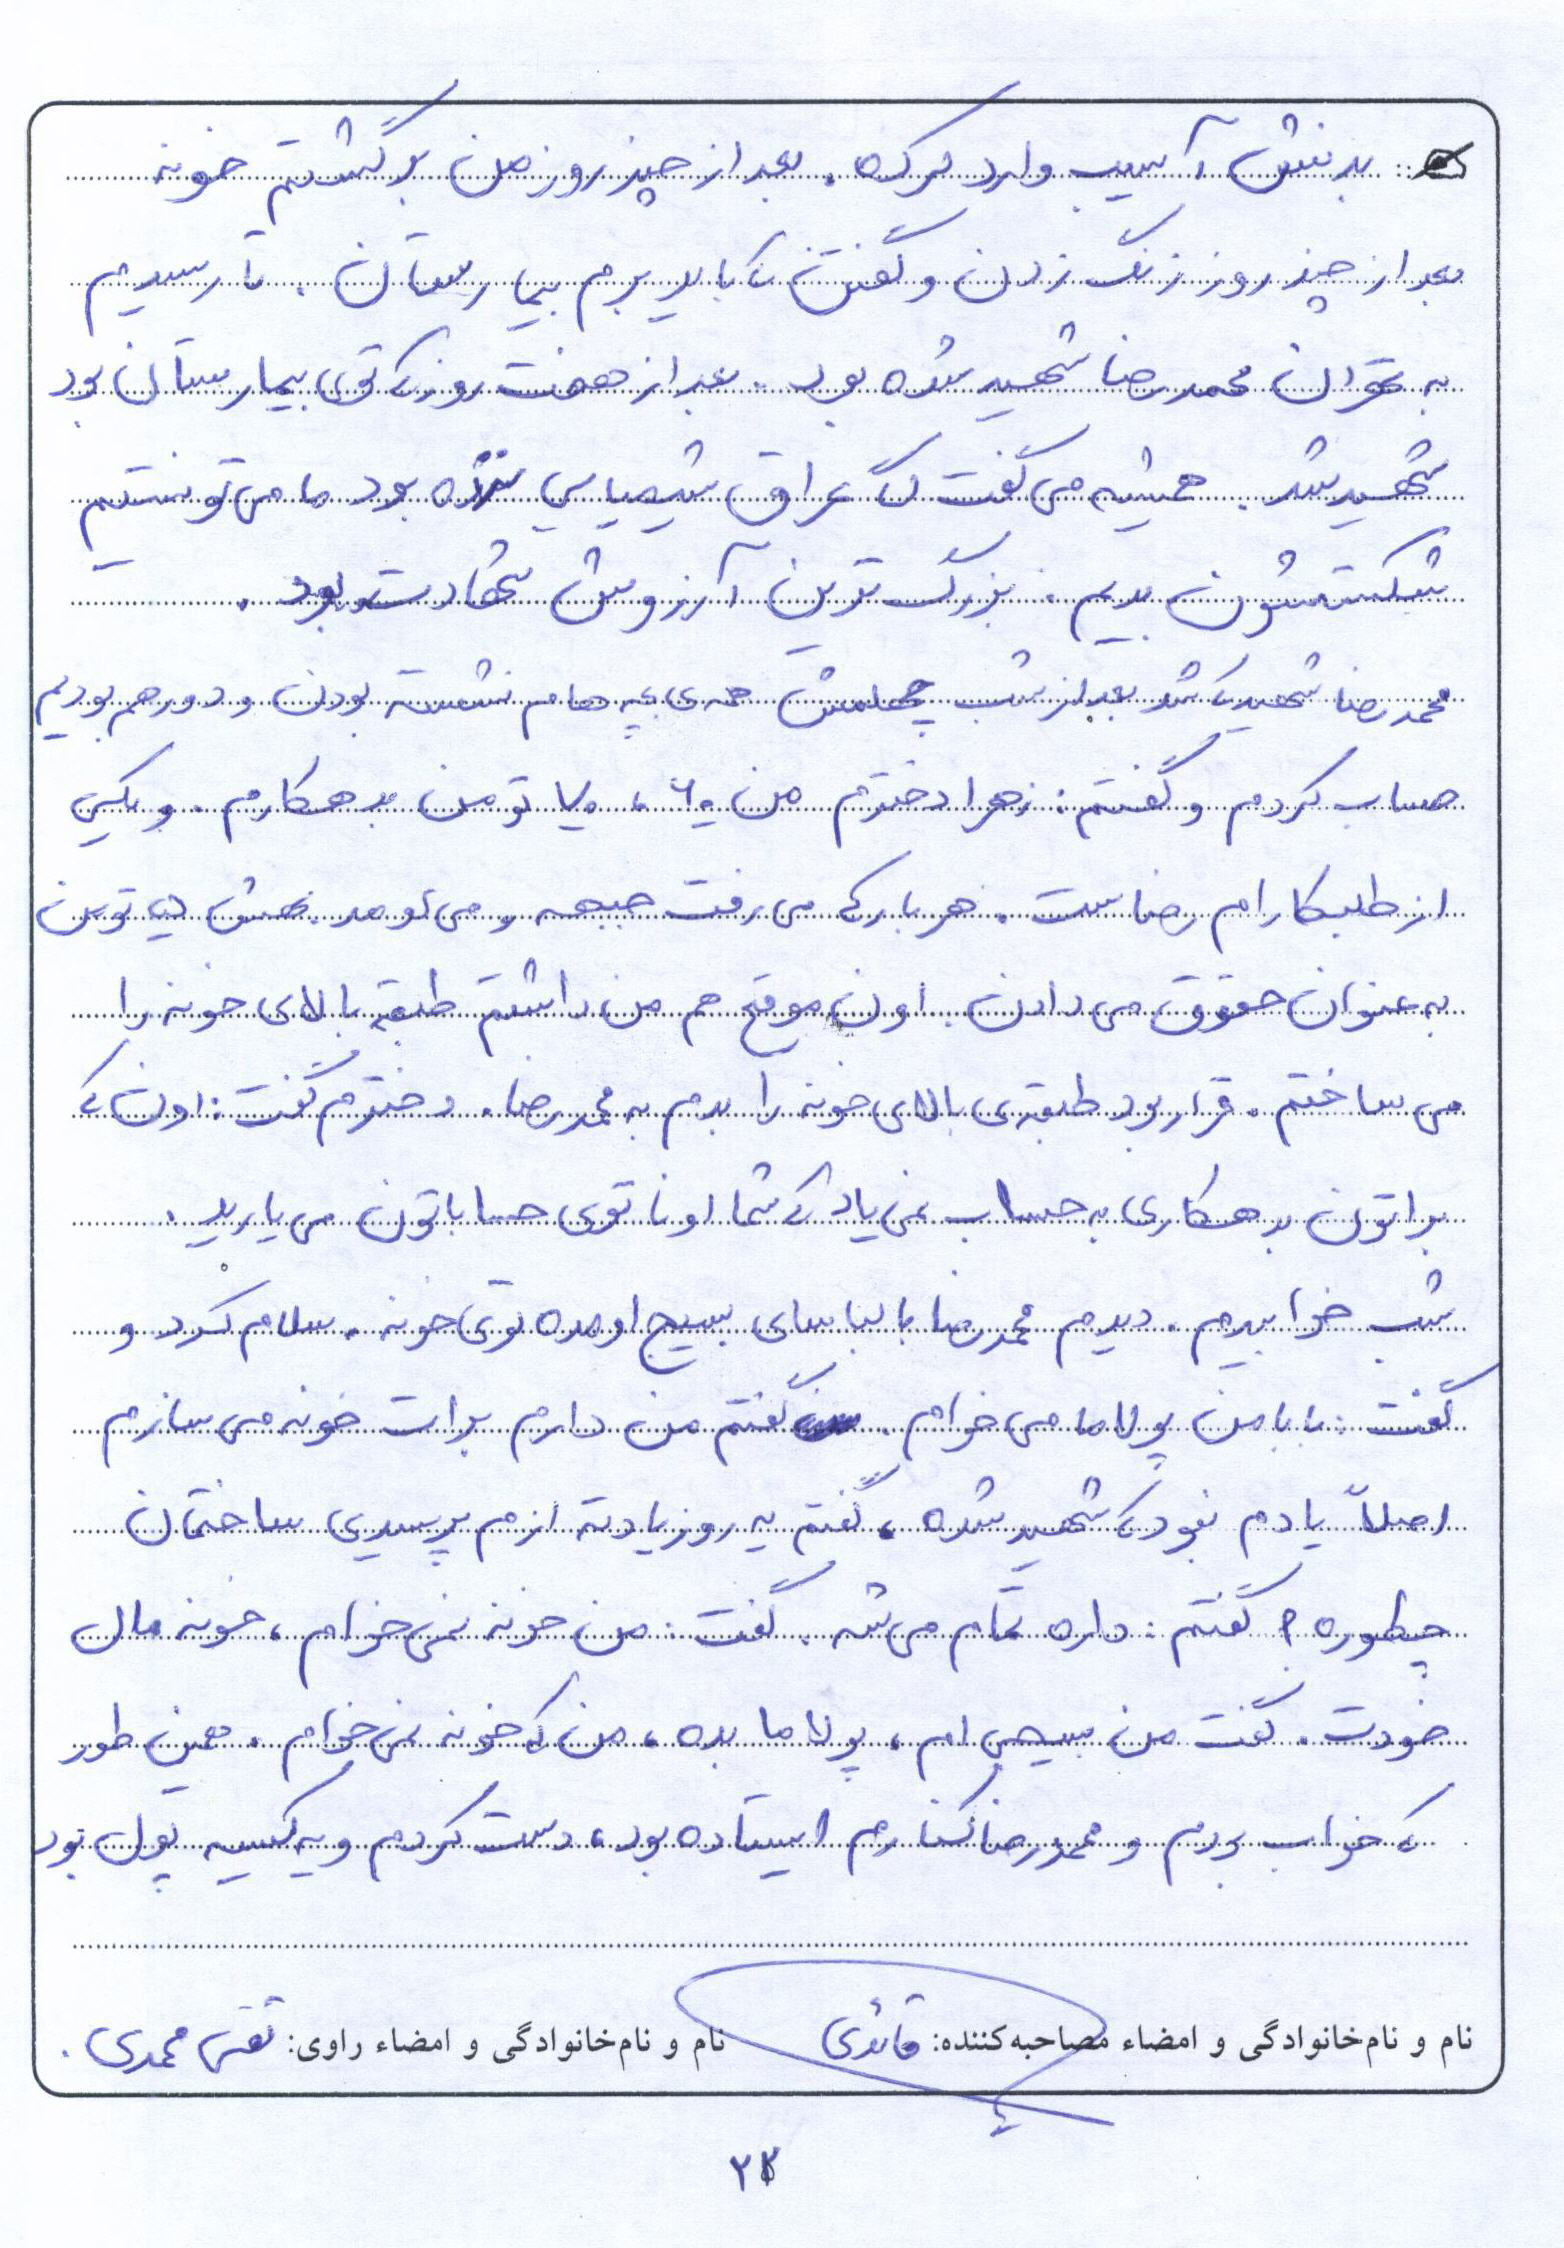 بدنش آسیب وارد کرده. بعد از چند روز من برگشتم خونه
بعد از چند روز زنگ زدن و گفتن که باید بریم بیمارستان. تا رسیدیم
به تهران محمدرضا شهید شده بود. بعد از هفت روز که توی بیمارستان بود
شهید شد. همیشه می گفت اگ عراق شیمیایی نزده بود ما می تونستیم
شکستشون بدیم. بزرگ ترین آرزوش شهادت بود.
محمدرضا شهید که شد بعد از شب چهلمش همه ی بچه هام نشسته بودن و دور هم بودیم
حساب کردم و گفتم: زهرا دخترم من ۶۰، ۷۰ تومن بدهکارم. و یکی
از طلبکارام رضاست. هر بار که می رفت جبهه و می اومد بهش تومن
به عنوان حقوق می دادن. اون موقع هم من داشتم طبقه بالای خونه را
می ساختم. قرار بود طبقه ی بالای خونه را بدم به محمدرضا. دخترم گفت: اون که
براتون بدهکاری به حساب نمی یاد که شما اونا توی حساباتون می یارید.
شب خوابیدم. دیدم محمدرضا با لباسای بسیج اومده توی خونه. سلام کرد و
گفت: بابا من پولاما می خوام. گفتم من دارم برات خونه می سازم
اصلاً یادم نبود که شهید شده، گفتم یه روز یادته ازم پرسیدی ساختمان
چطوره؟ گفتم: داره تمام می شه. گفت: من خونه نمی خوام، خونه مال
خودت. گفت من بسیجی ام، پولاما بده، من که خونه نمی خوام. همین طور
که خواب بودم و محمدرضا کنارم ایستاده بود، دست کردم و یه کیسه پول بود
نام و نام‌خانوادگی و امضاء مصاحبه‌کننده: قائدی نام و نام‌خانوادگی و امضاء راوی: تقی محمدی.
۲۲